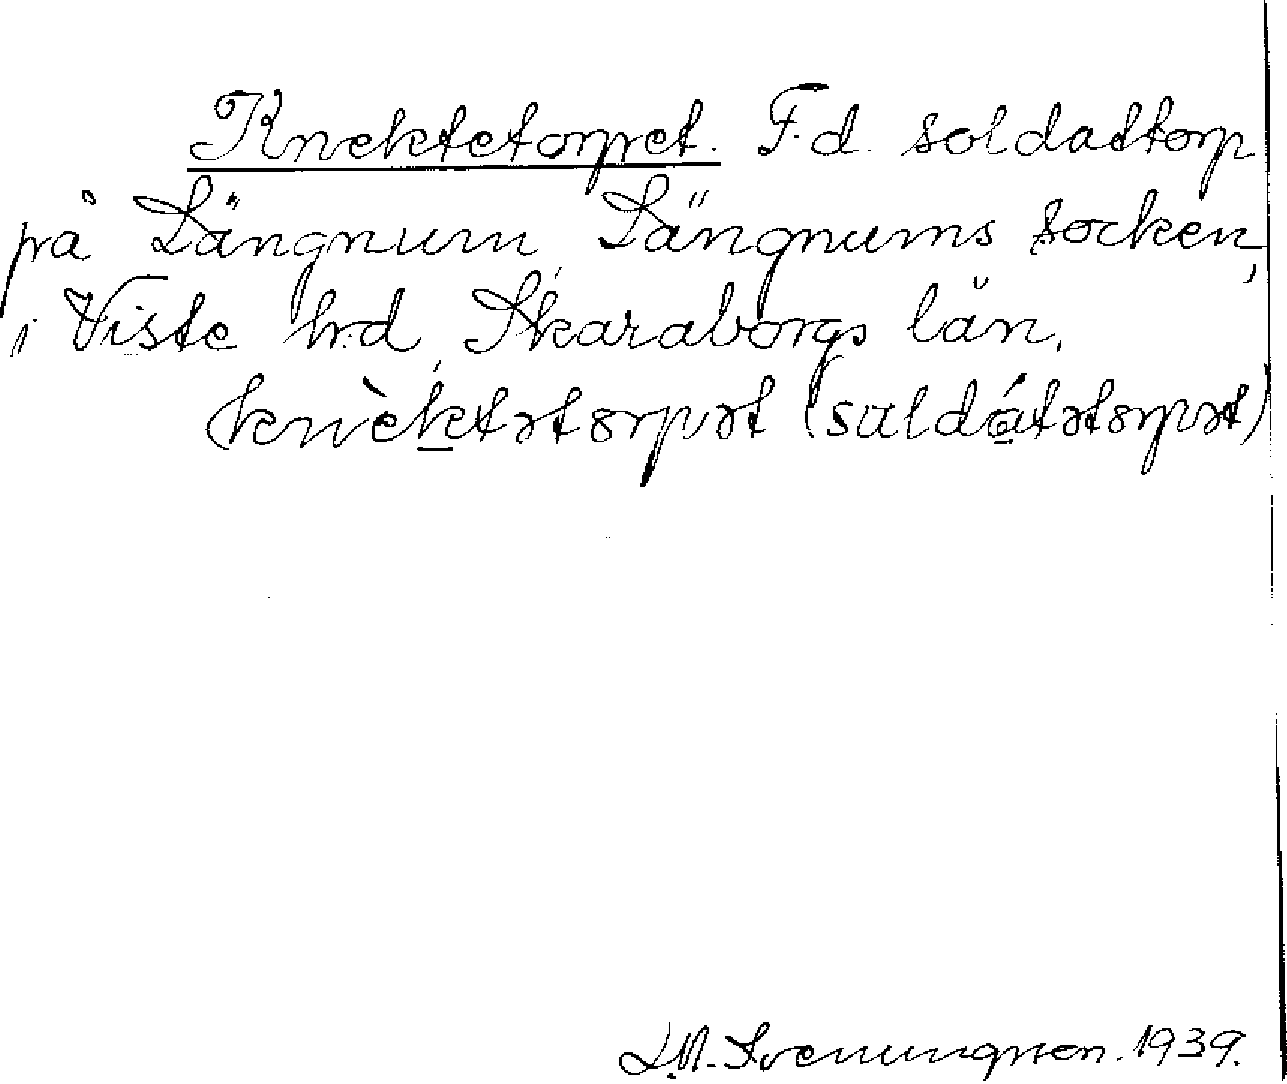 Knektetorpet. F.d. soldattorp
på Längnum, Längnums socken,
i Viste hrd, Skaraborgs län.
knèktətorpət (saldátətorpət)
1939.